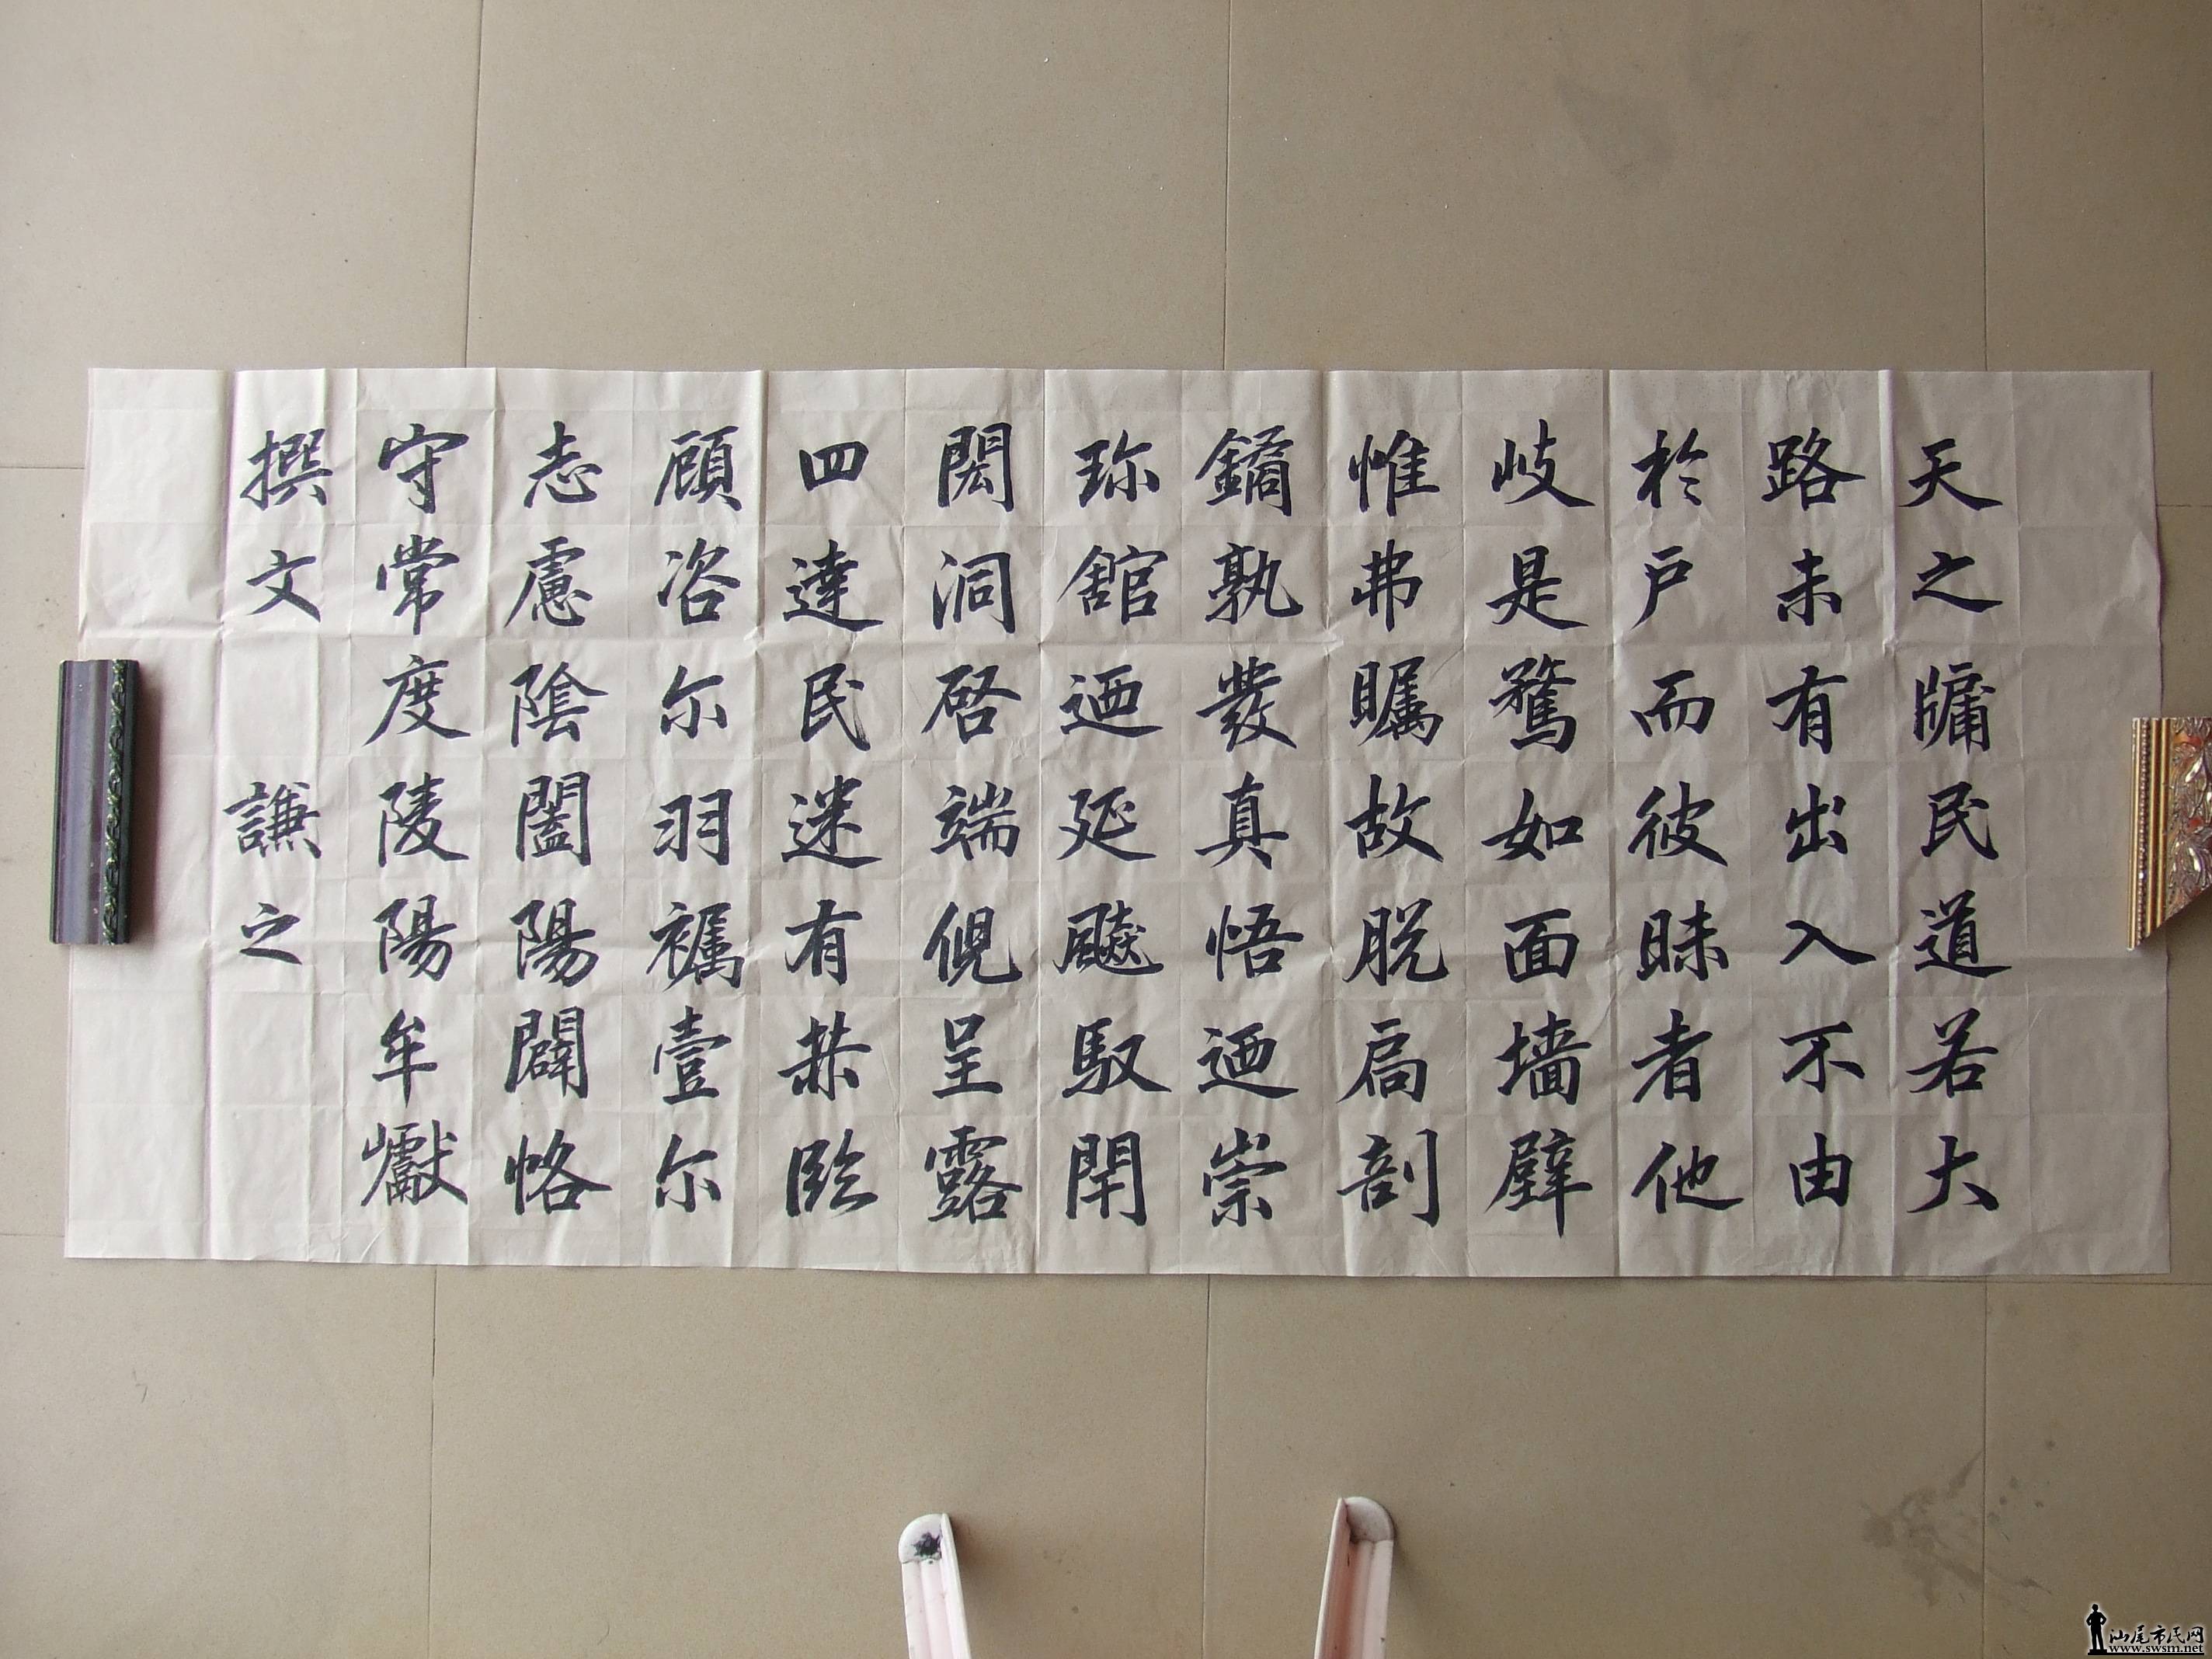 天之牖民道若大
路未有出入不由
於户而彼昧者他
岐是騖如面墙壁
惟弗矚故脱扃剖
鐍孰發真悟迺崇
珎舘迺延飈馭閈
閎洞啓端倪呈露
四達民迷有赫臨
顧咨尔羽襹壹尔
志慮陰闔陽闢恪
守常度陵陽牟巘
撰文 謙之
汕尾市民网
www.swsm.net